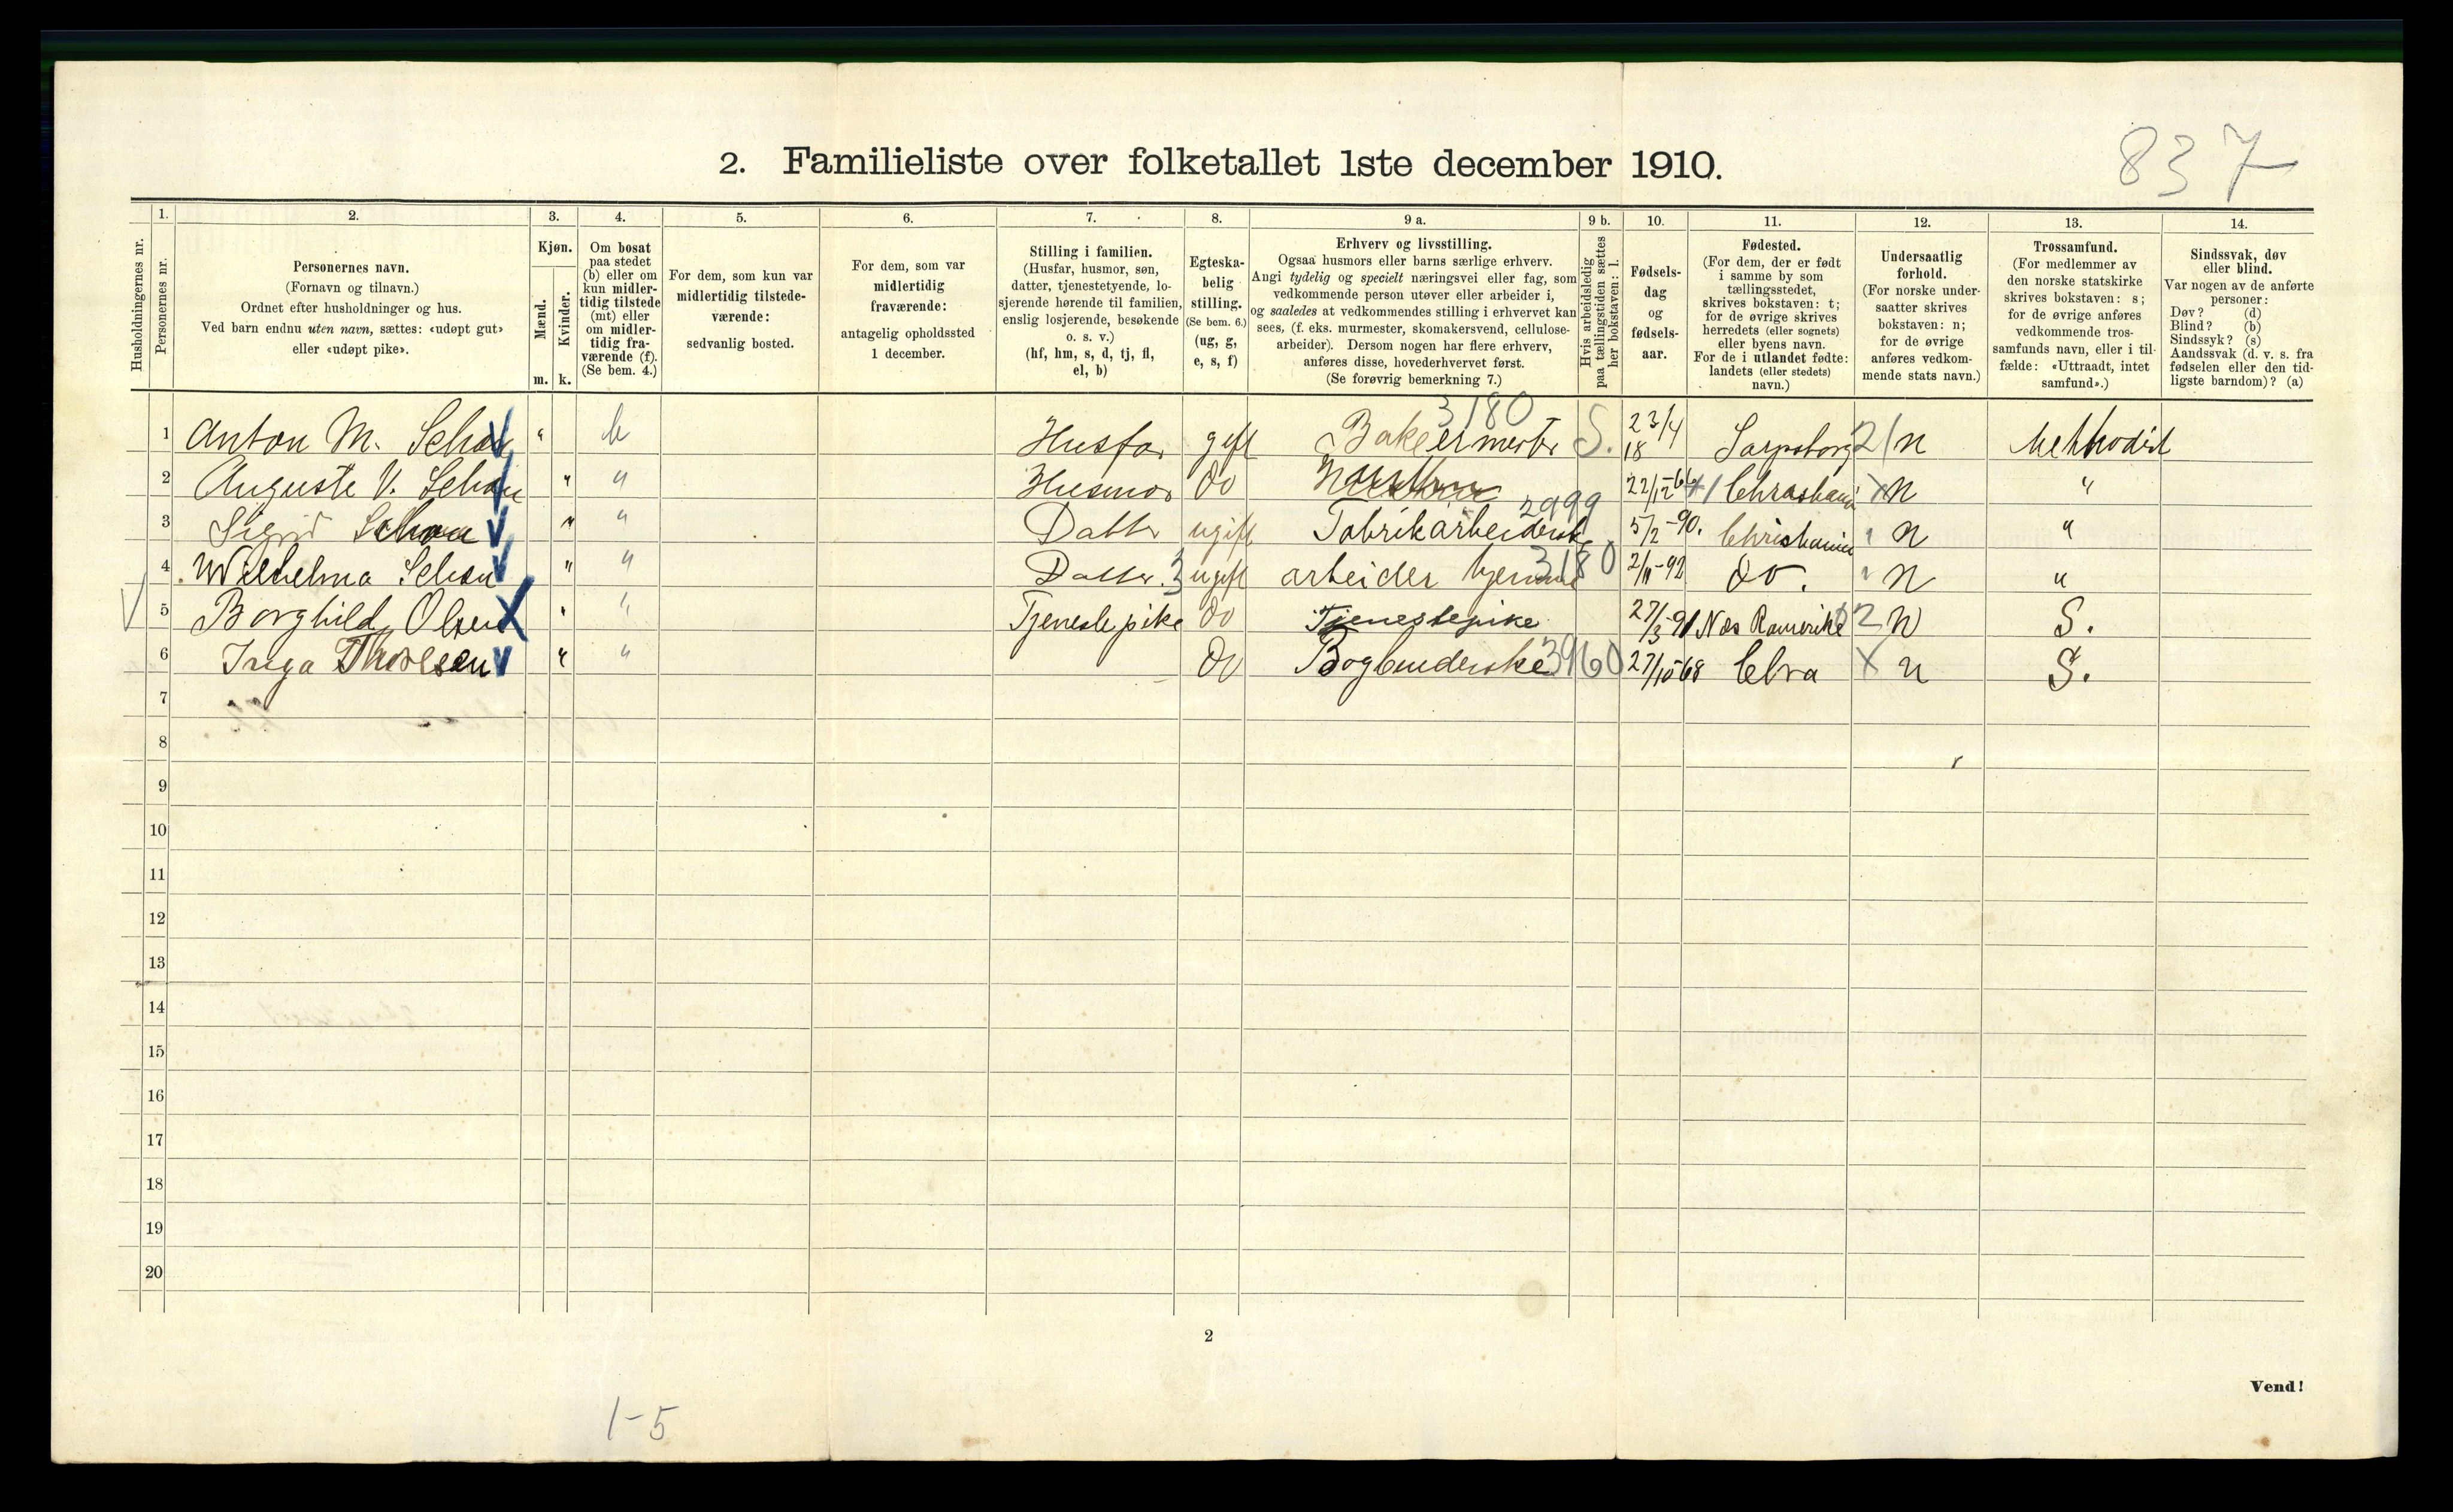 837
2. Familieliste over folketallet 1ste december 1910.
Husholdningernes nr.
1.
Personernes nr.
2.
Personernes navn.
(Fornavn og tilnavn.)
Ordnet efter husholdninger og hus.
Ved barn endnu uten navn, sættes: «udøpt gut»
eller «udøpt pike».
3.
Kjøn.
Mænd.
Kvinder.
m. k.
4.
Om bosat
paa stedet
(b) eller om
kun midler-
tidig tilstede
(mt) eller
om midler-
tidig fra-
værende (f).
(Se bem. 4.)
5.
For dem, som kun var
midlertidig tilstede-
værende:
sedvanlig bosted.
6.
For dem, som var
midlertidig
fraværende:
antagelig opholdssted
1 december.
7.
Stilling i familien.
(Husfar, husmor, søn,
datter, tjenestetyende, lo-
sjerende hørende til familien,
enslig losjerende, besøkende
o. s. v.)
(hf, hm, s, d, tj, fl,
el, b)
8.
Egteska-
belig
stilling.
(Se bem. 6.)
(ug, g,
e, s, f)
9 a.
Erhverv og livsstilling.
Ogsaa husmors eller barns særlige erhverv.
Angi tydelig og specielt næringsvei eller fag, som
vedkommende person utøver eller arbeider i,
og saaledes at vedkommendes stilling i erhvervet kan
sees, (f. eks. murmester, skomakersvend, cellulose-
arbeider). Dersom nogen har flere erhverv,
anføres disse, hovederhvervet først.
(Se forøvrig bemerkning 7.)
9 b.
Hvis arbeidsledig
paa tællingstiden sættes
her bokstaven: l.
10.
Fødsels-
dag
og
fødsels-
aar.
11.
Fødested.
(For dem, der er født
i samme by som
tællingsstedet,
skrives bokstaven: t;
for de øvrige skrives
herredets (eller sognets)
eller byens navn.
For de i utlandet fødte:
landets (eller stedets)
navn.)
12.
Undersaatlig
forhold.
(For norske under-
saatter skrives
bokstaven: n;
for de øvrige
anføres vedkom-
mende stats navn.)
13.
Trossamfund.
(For medlemmer av
den norske statskirke
skrives bokstaven: s;
for de øvrige anføres
vedkommende tros-
samfunds navn, eller i til-
fælde: «Uttraadt, intet
samfund».)
14.
Sindssvak, døv
eller blind.
Var nogen av de anførte
personer:
Døv? (d)
Blind? (b)
Sindssyk? (s)
Aandssvak (d. v. s. fra
fødselen eller den tid-
ligste barndom)? (a)
3180
1 Anton M. Schou " b Husfar gift Bakermester S. 23/4 18 Sarpsborg 21 n Methodist
2 Auguste V. Schou " " Husmor do 22/12-66 Christiania n "
2999
3 Sigrid Schou " " Datter ugift Fabrikarbeiderske 5/2-90. Christiania n "
4 Wilhelma Schou " " Datter. 3 ugift arbeider hjemme 3180 2/11-92 do. n "
5 Borghild Olsen " " Tjenestepike do Tjenestepike 27/3-91 Næs Romerike 02 n S.
6 Inga Thoresen " " do Bogbinderske 3960 27/10-68 Chra n S.
7
8
9
10
11
12
13
14
15
16
17
18
19
20
2
Vend!
1-5